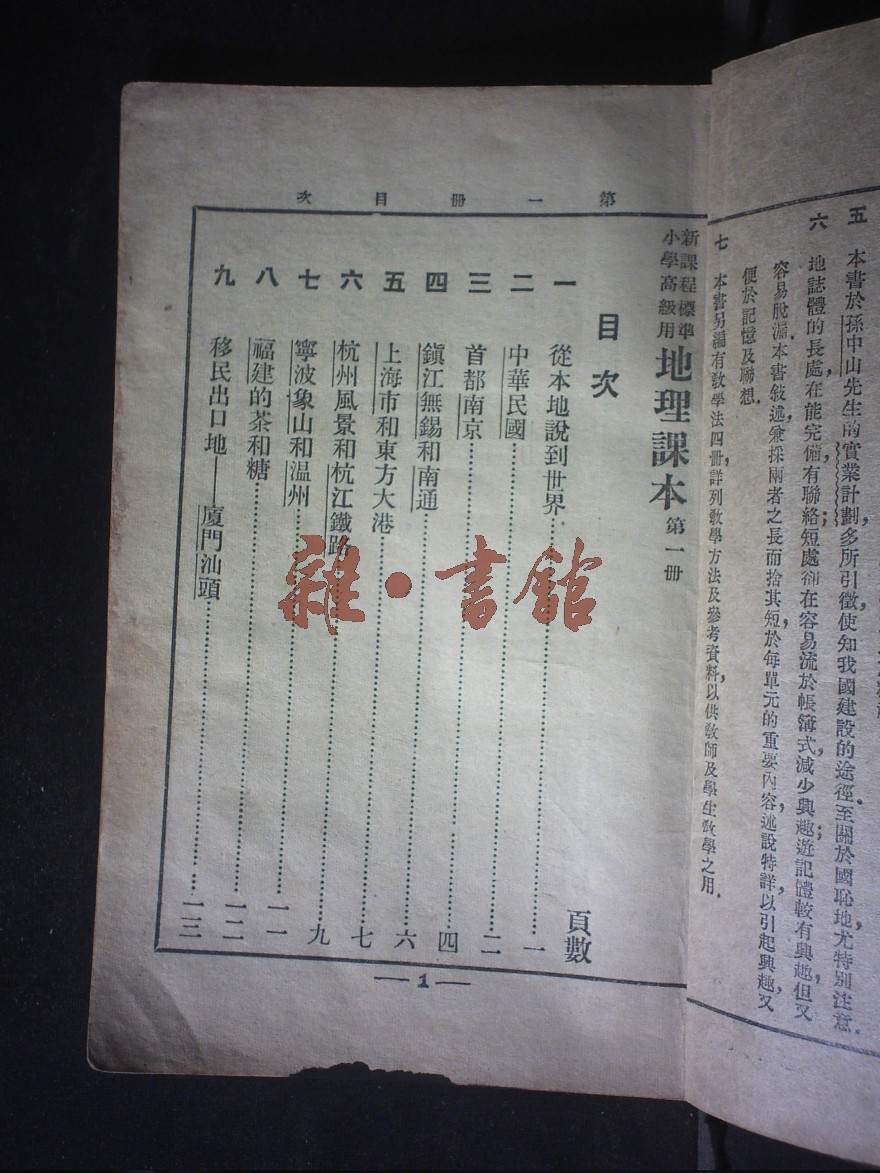 五　本書於孫中山先生的實業計劃多所引徵，使知我國建設的途徑．至關於國恥地，尤特別注意．
六　地誌體的長處，在能完備有聯絡；短處，卻在容易流於帳簿式，減少興趣；遊記體較有興趣，但又
容易脫漏．本書敍述，兼採兩者之長而捨其短，於每單元的重要內容，述說特詳，以引起興趣，又
便於記憶及聯想．
七　本書另編有敎學法四冊，詳列敎學方法及參考資料，以供敎師及學生敎學之用．
第一冊目次
新課程標準
小學高級用
地理課本 第一冊
目次
頁數
一　從本地說到世界……一
二　中華民國……二
三　首都南京……四
四　鎮江無錫和南通……六
五　上海市和東方大港……七
六　杭州風景和杭江鐵路……九
七　寧波象山和温州……一一
八　福建的茶和糖……一二
九　移民出口地——廈門汕頭……一三
— 1 —
雜·書館